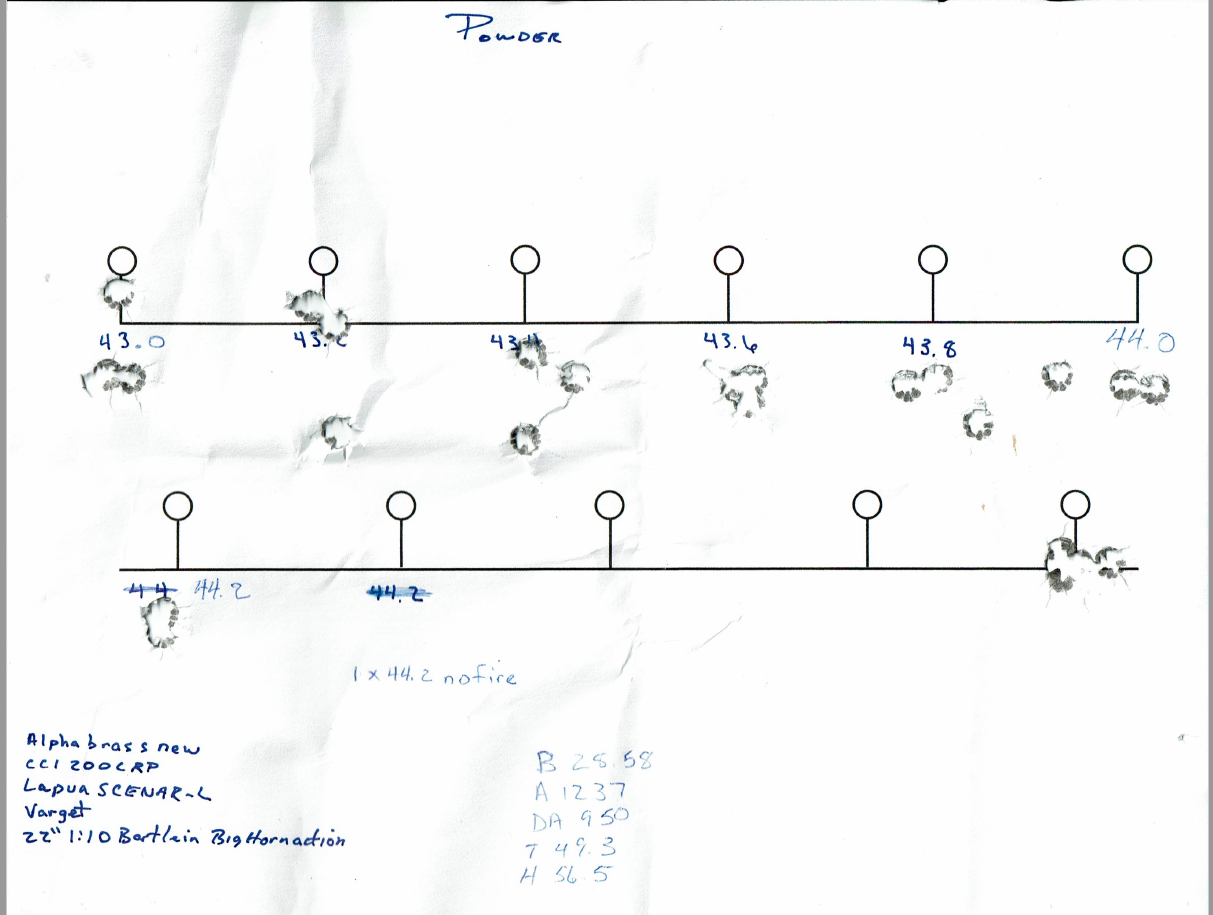 POWDER
43.0 43.2 43.4 43.6 43.8 44.0
44 44.2 44.2
1 x 44.2 nofire
Alpha brass new
CCI 200 LRP
Lapua SCENAR-L
Varget
22" 1:10 Bartlein BigHorn action
B 28.58
A 1237
DA 950
T 49.3
H 56.5